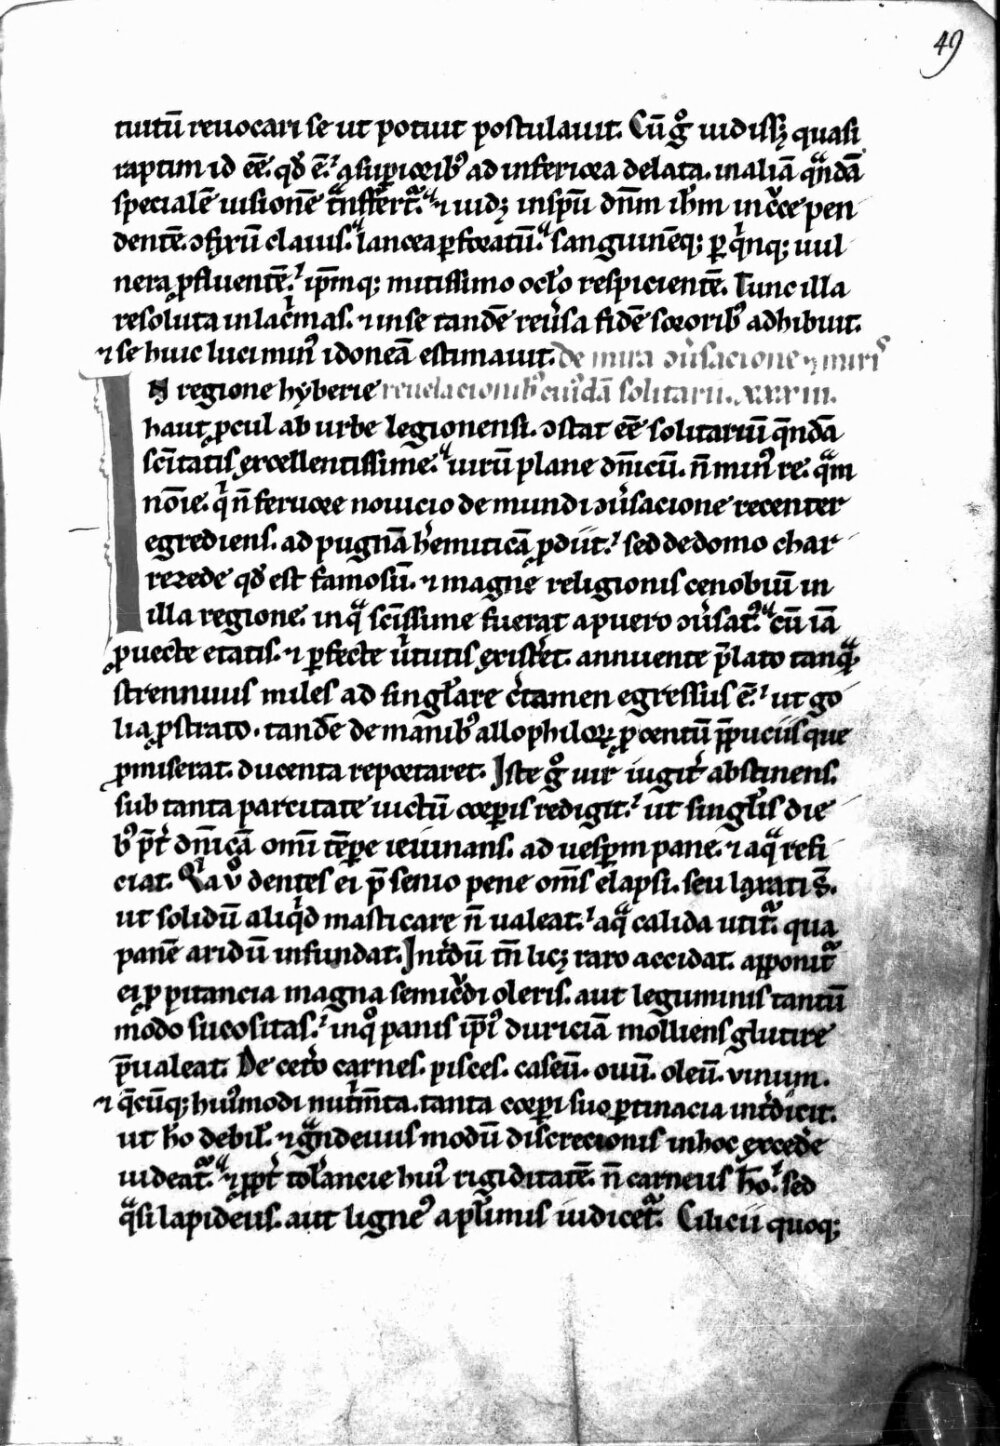 49
tuitū reuocari se ut potuit postulauit. Cū gͦ uidissꝫ quasi
raptim id eē. qd̄ ē.ʼ a supͥoribꝰ ad inferiora delata. in aliā qᷓndā
specialē uisionē tͣnsfert᷑. ⁊ uidꝫ in spū dn̄m ih̄m in cͮce pen
dentē. ꝯfixū clauis. lancea ꝑforatū. sanguinēqꝫ ꝑ qͥnqꝫ uul
nera ꝓfluentē.ʼ ip̄mqꝫ mitissimo oclo̓ respicientē. Tunc illa
resoluta in lacͥmas. ⁊ in se tandē reuͥsa fidē sororibꝰ adhibuit.
⁊ se huic luci minꝰ idoneā estimauit. De mira ꝯuͥsacione ⁊ miris
IN regione hyberie reuelacionibꝰ cuiꝰdā solitarii. xxxiii.
haut ꝓcul ab urbe legionensi. ꝯstat eē solitariū qͣndā
scītatis excellentissime. uirū plane dn̄icū. n̄ minꝰ re. qͣm
noīe. qͥ n̄ feruore nouicio de mundi ꝯuͥsacione recenter
egrediens. ad pugnā hͤmiticā ꝓdiit.ʼ sed de domo char
rezede qd̄ est famosū. ⁊ magne religionis cenobiū in
illa regione. in qͣ scīssime fuerat a puero ꝯuͥsatꝰ. cū iā
ꝓuecte etatis. ⁊ ꝑfecte uͥtutis existēt. annuente p̄lato tanqᷓ
strennuus miles ad singlare cͥtamen egressus ē.ʼ ut go
lia ꝓstrato. tandē de manibꝰ allophiloꝝ ꝓ centū p̄puciis que
ꝓmiserat. ducenta reportaret. Iste gͦ uir iugit̓ abstinens.
sub tanta parcitate uictū corꝑis redigit.ʼ ut singlis die
bꝰ p̄t̓ dn̄icā omī tēpe ieiunans. ad uesꝑm pane. ⁊ aqͣ refi
ciat. Qͥa ỽ dentes ei p̄ senio pene om̄s elapsi. seu laxati s̄.
ut solidū aliqͥd masticare n̄ ualeat.ʼ aqͣ calida utit᷑. qua
panē aridū infundat. Int̓dū tn̄ licꝫ raro accidat. apponit᷑
ei ꝓ pitancia magna semicͮdi oleris. aut leguminis tantū
modo sucositas.ʼ in qͦ panis ip̄iꝰ duriciā molliens glutire
p̄ualeat. De cet̓o carnes. pisces. caseū. ouū. oleū. vinum.
⁊ qͣcūqꝫ huꝰmodi nut̓m̄ta. tanta corꝑi suo ꝑtinacia int̓dicit.
ut hō debil̓. ⁊ gͣndeuus modū discrecionis in hoc excede̓
uideat᷑. ⁊ ꝓpt̓ tol̓ancie huiꝰ rigiditatē. n̄ carneus hō.ʼ sed
qͣsi lapideus. aut ligneꝰ a pl̓imis iudicet᷑. Cilicii quoqꝫ